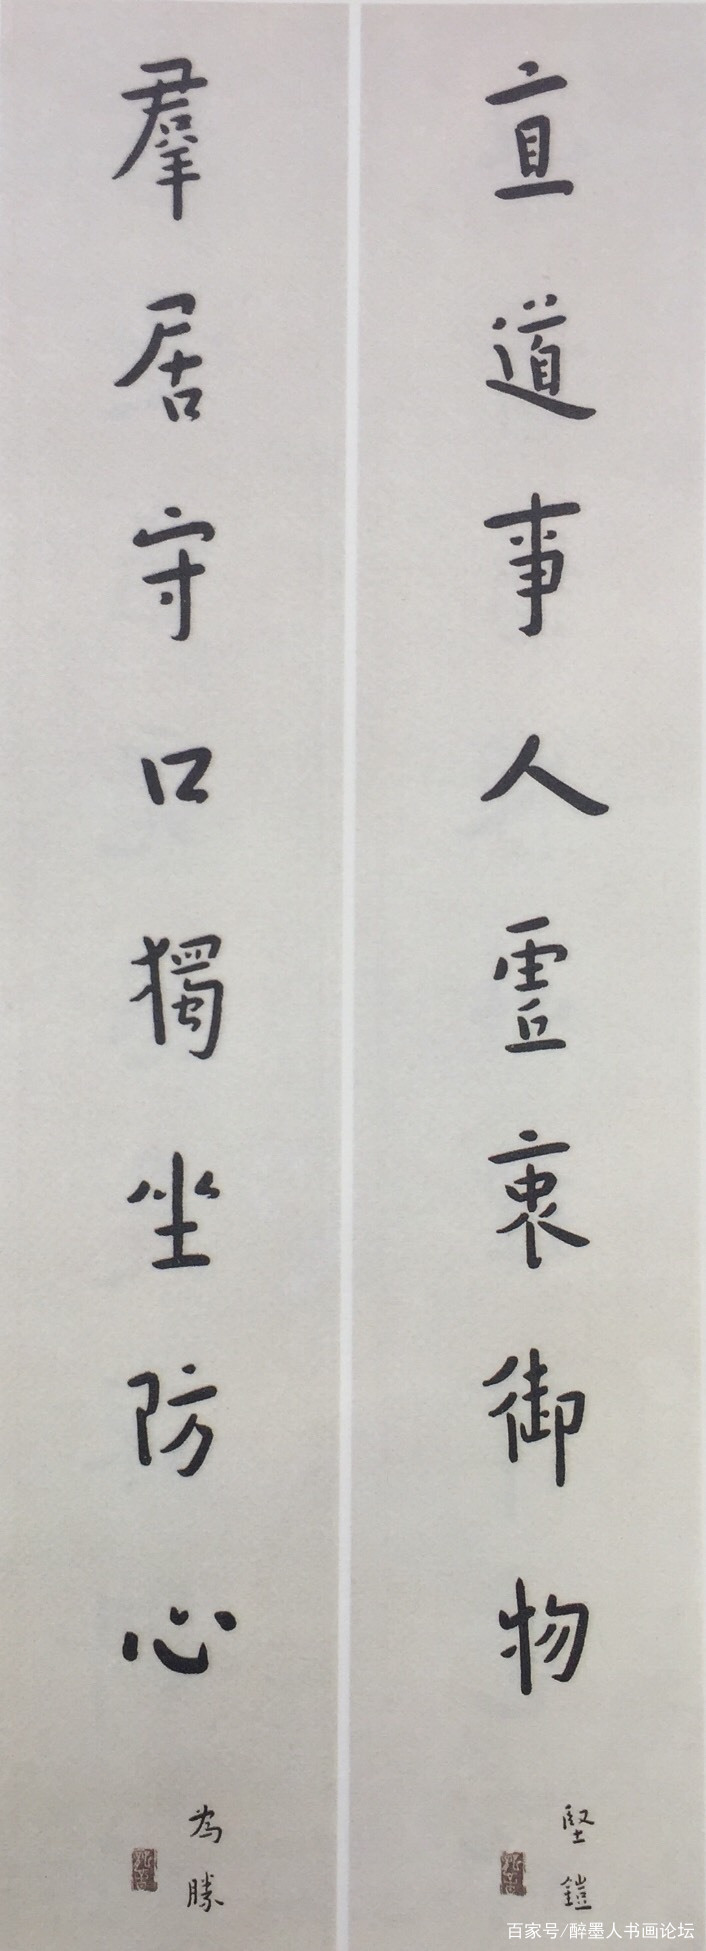 直道事人虛衷御物
堅鎧
羣居守口獨坐防心
為勝
百家号/醉墨人书画论坛